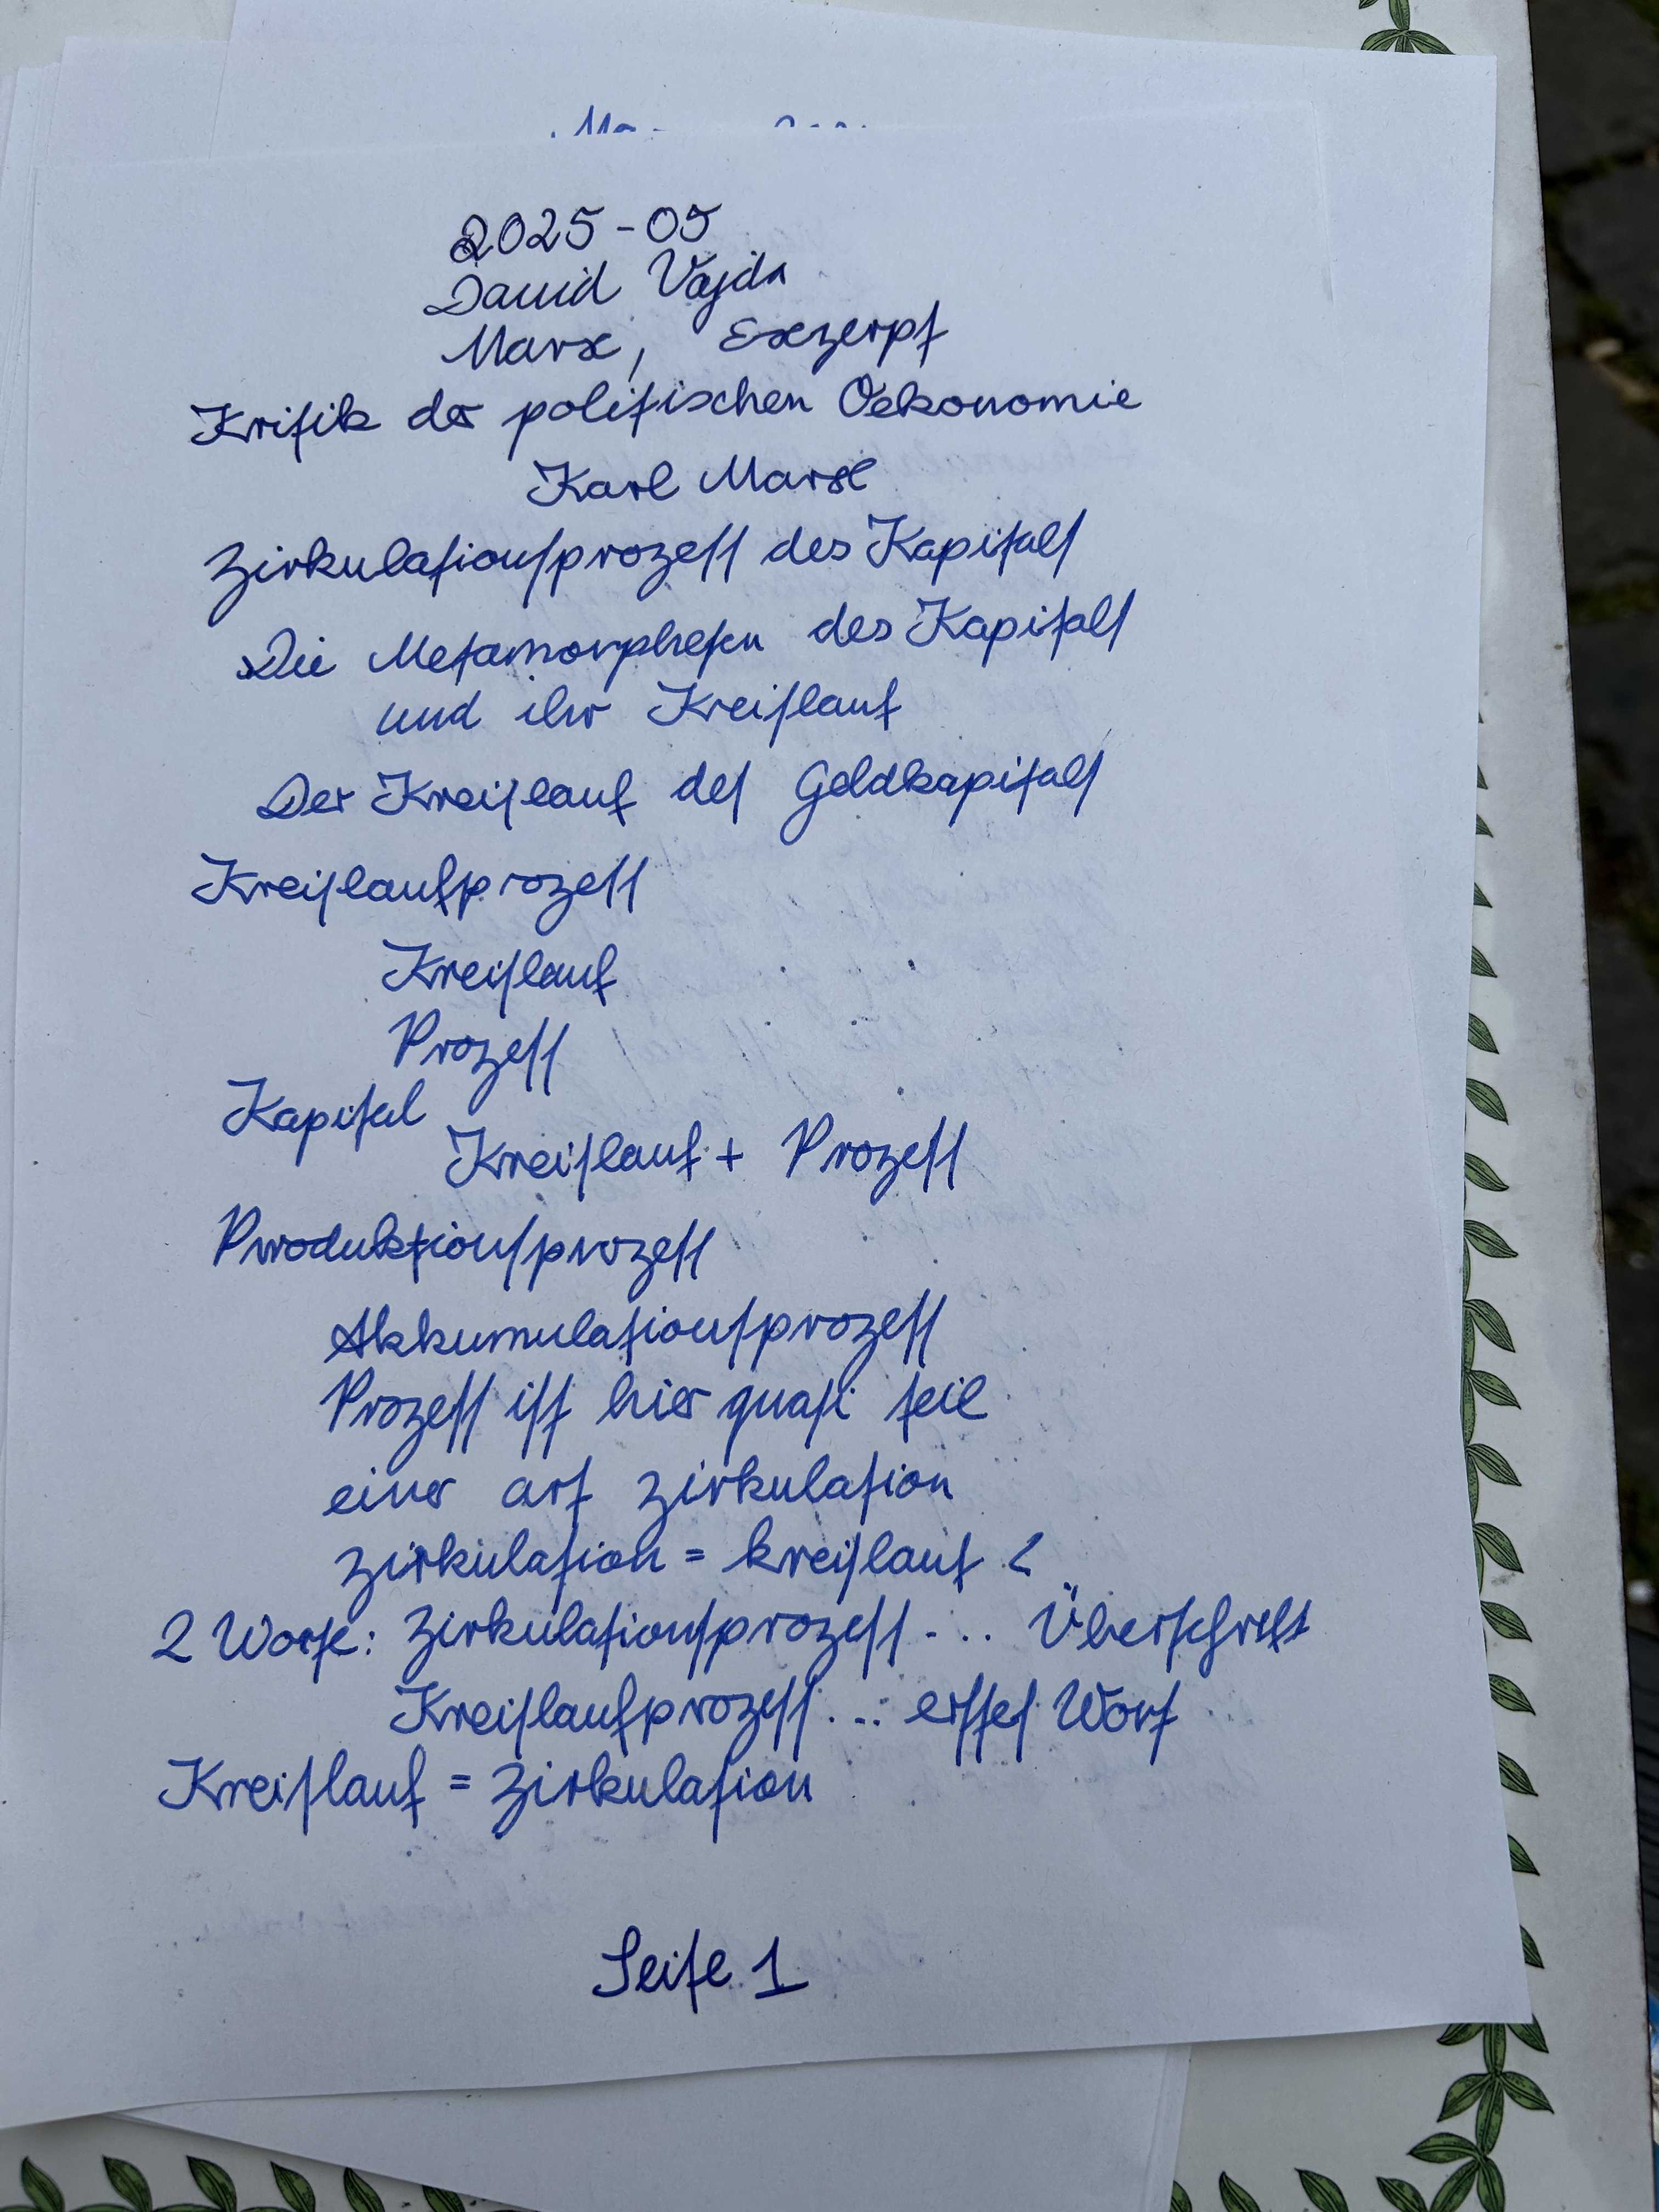 2025-05
David Vajda
Marx, Exzerpt
Kritik der politischen Oekonomie
Karl Marx
Zirkulationſprozeſſ des Kapitalſ
Die Metamorphoſen des Kapitalſ
und ihr Kreiſlauf
Der Kreiſlauf deſ Geldkapitalſ
Kreiſlaufprozeſſ
Kreiſlauf
Prozeſſ
Kapital
Kreiſlauf + Prozeſſ
Produktionſprozeſſ
Akkumulationſprozeſſ
Prozeſſ iſt hier quaſi teil
einer art zirkulation
zirkulation = kreiſlauf <
2 Worte: Zirkulationſprozeſſ ... Überſchrift
Kreiſlaufprozeſſ ... erſteſ Wort
Kreiſlauf = Zirkulation
Seite 1